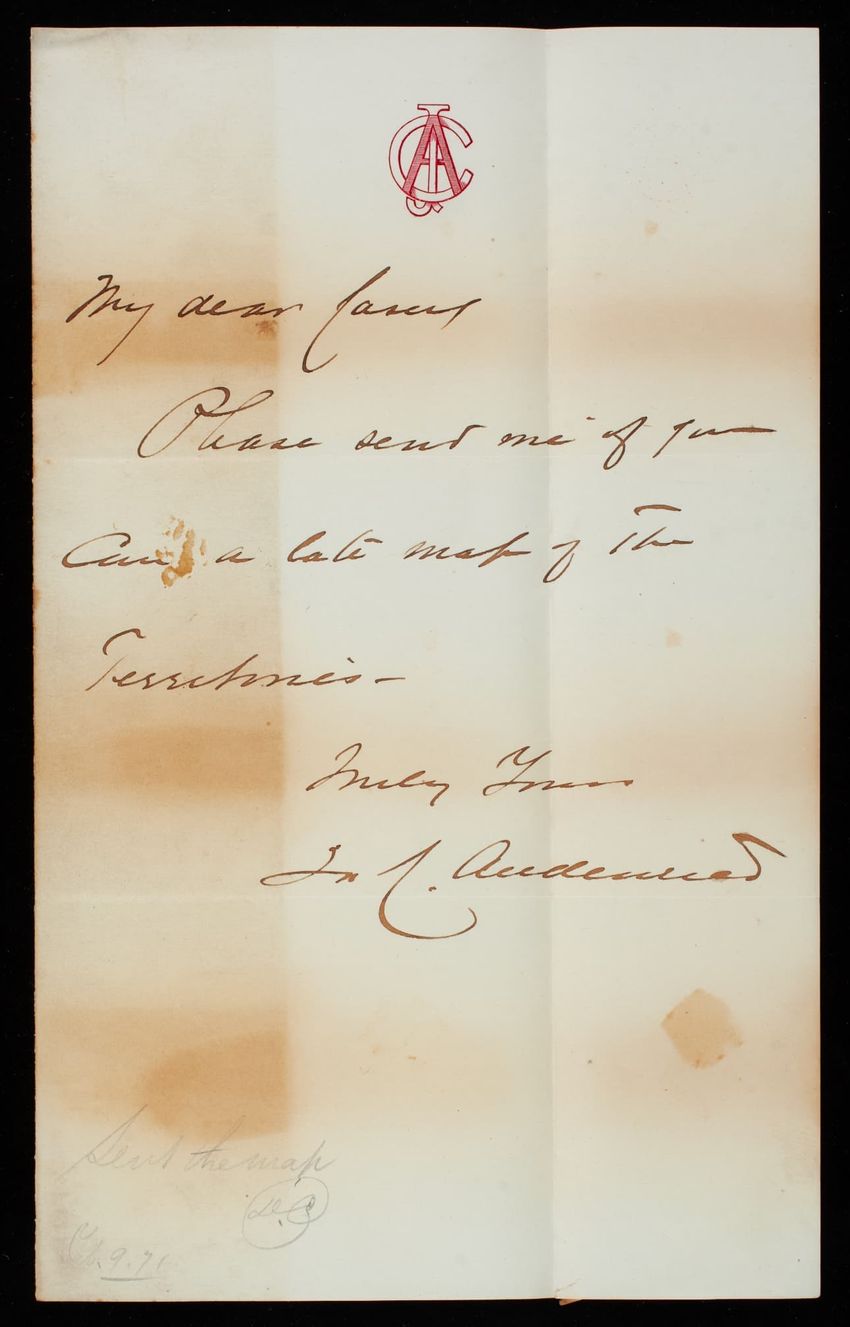 JCA
My dear Casey
Please send me if you
Can a late map of the
Territories –
Truly Yours
Jn C. Audenried
Sent the map
Feb. 9. 71